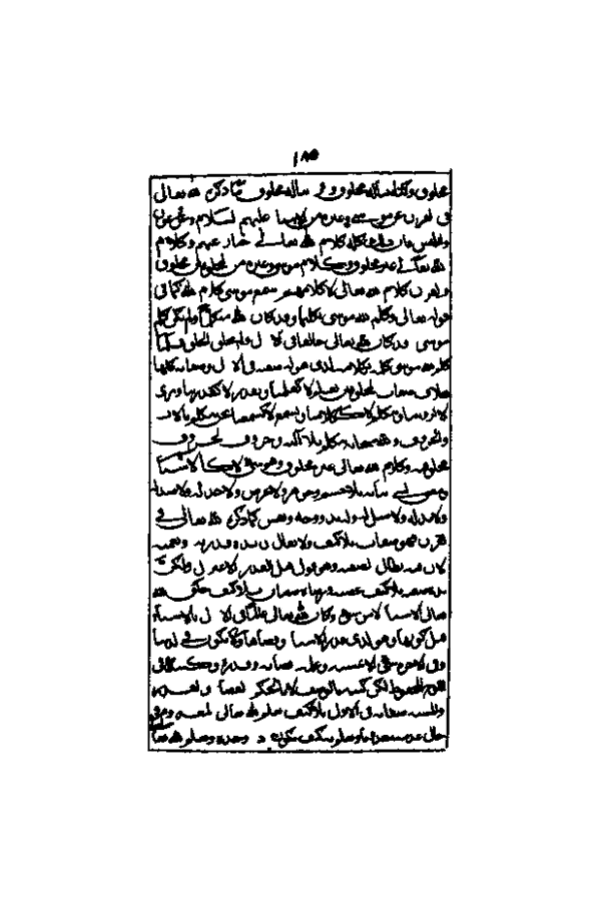 ١٨٥
مخلوق وكتابتنا له مخلوق وقراءتنا له مخلوق وما ذكره الله تعالى
في القرآن عن موسى وغيره من الأنبياء عليهم السلام وعن فرعون
وابليس فان ذلك كله كلام الله تعالى اخبار عنهم وكلام
الله تعالى غير مخلوق وكلام موسى وغيره من المخلوقين مخلوق
والقرآن كلام الله تعالى لا كلامهم وسمع موسى كلام الله كما في
قوله تعالى وكلم الله موسى تكليما وقد كان الله متكلما ولم يكن كلم
موسى وقد كان الله تعالى خالقا في الازل ولم يخلق الخلق فلما
كلم الله موسى كلمه بكلامه الذي هو له صفة في الازل وصفاته كلها
خلاف صفات المخلوقين يعلم لا كعلمنا ويقدر لا كقدرتنا ويرى
لا كرؤيتنا ويتكلم لا ككلامنا ويسمع لا كسمعنا نحن نتكلم بالالات
والحروف والله سبحانه يتكلم بلا آلة وحروف والحروف
مخلوقة وكلام الله تعالى غير مخلوق وهو شيء لا كالاشياء
ومعنى الشيء اثباته بلا جسم وجوهر ولا عرض ولا حد له ولا ضد له
ولا ند له ولا مثل له وله يد ووجه ونفس كما ذكره الله تعالى في
القرآن فهو صفات بلا كيف ولا يقال ان يده قدرته ونعمته
لان فيه ابطال الصفة وهو قول اهل القدر والاعتزال ولكن
يده صفته بلا كيف وغضبه ورضاه صفتان بلا كيف خلق الله
تعالى الاشياء لا من شيء وكان الله تعالى عالما في الازل بالاشياء
قبل كونها وهو الذي قدر الاشياء وقضاها ولا يكون في الدنيا
ولا في الاخرة شيء الا بمشيته وعلمه وقضائه وقدره وكتبه في
اللوح المحفوظ ولكن كتبه بالوصف لا بالحكم والقضاء والقدر
والمشية صفاته في الازل بلا كيف يعلم الله تعالى المعدوم في
حال عدمه معدوما ويعلم كيف يكون وجده ويعلم الله